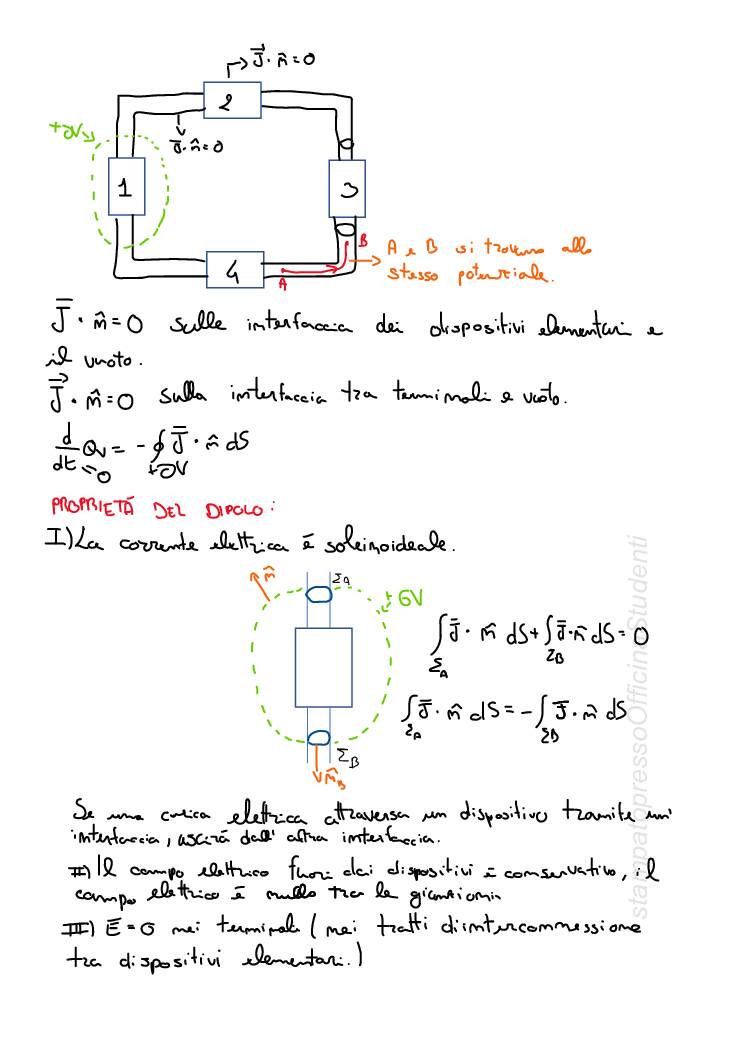 J⃗ · n̂ = 0
2
+∂V
J̅ · n̂ = 0
1
3
B
A e B si trovano allo
stesso potenziale.
4
A
J̅ · n̂ = 0 sulle interfaccia dei dispositivi elementari e
il vuoto.
J⃗ · n̂ = 0 sulla interfaccia tra terminali e vuoto.
d/dt Qv = - ∮ J̅ · n̂ dS
=0 +∂V
PROPRIETÁ DEL DIPOLO:
I) La corrente elettrica é soleinoideale.
n̂ ΣA
+ GV
∫ J̅ · n̂ dS + ∫ J̅ · n̂ dS = 0
ΣA ΣB
∫ J̅ · n̂ dS = - ∫ J̅ · n̂ dS
ΣA ΣB
ΣB
n̂B
Se una carica elettrica attraversa un dispositivo tramite un'
interfaccia, uscirá dall' altra interfaccia.
II) Il campo elettrico fuori dai dispositivi é conservativo, il
campo elettrico é nullo tra le giunzioni
III) E̅ = 0 nei terminali (nei tratti di interconnessione
tra dispositivi elementari.)
stampatopressoOfficineStudenti